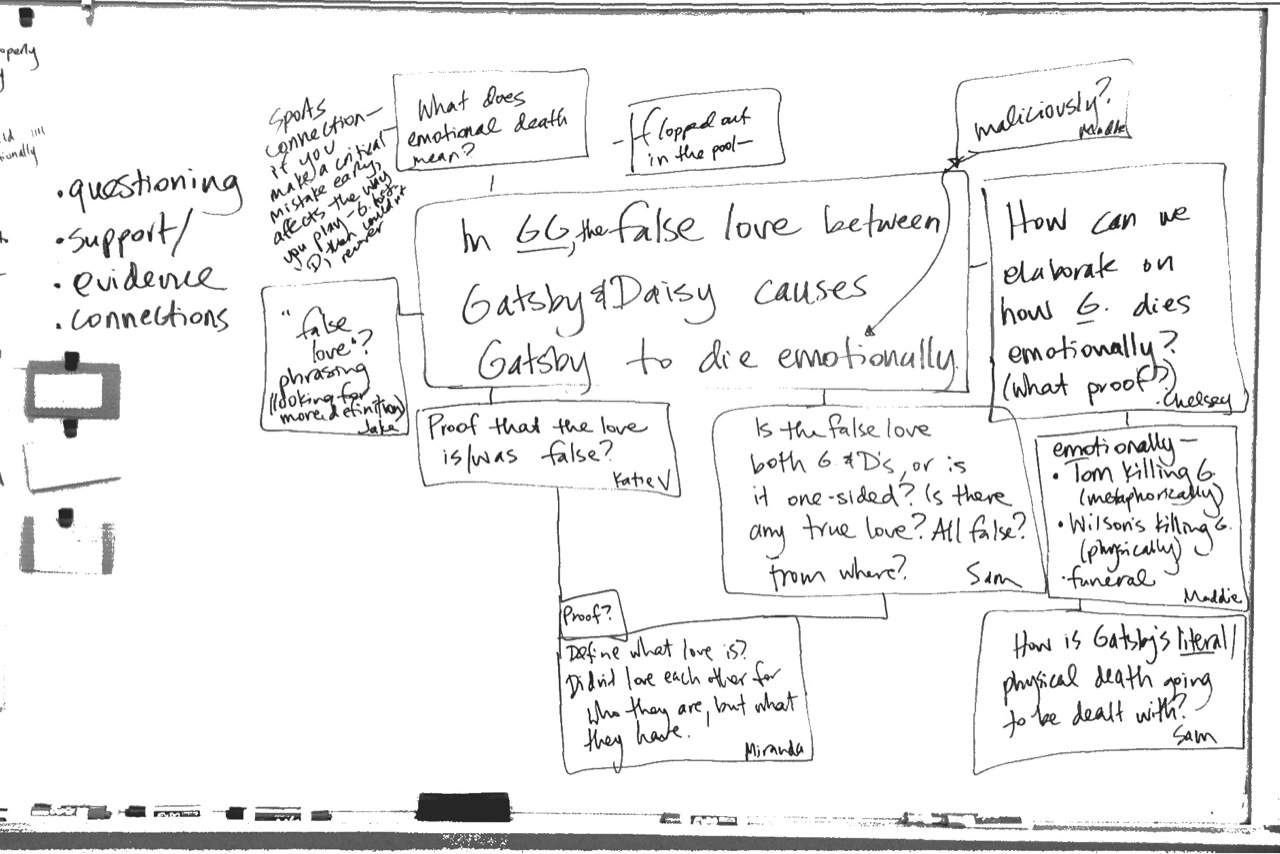 operly
y
ld
ionally
• questioning
• support/
• evidence
• connections
Sports
connection—
if you
make a critical
mistake early,
affects the way
you play— G. lost
D, then couldn't
recover
What does
emotional death
mean?
—flopped out
in the pool—
maliciously?
Maddie
In GG, the false love between
Gatsby & Daisy causes
Gatsby to die emotionally.
"false
love"?
phrasing
(looking for
more definition)
Jake
How can we
elaborate on
how G. dies
emotionally?
(what proof?)
Chelsey
Proof that the love
is/was false?
Katie V
Is the false love
both G. & D's, or is
it one-sided? Is there
any true love? All false?
from where?
Sam
emotionally—
• Tom killing G.
(metaphorically)
• Wilson's killing G.
(physically)
• funeral
Maddie
Proof?
Define what love is?
Didn't love each other for
who they are, but what
they have.
Miranda
How is Gatsby's literal/
physical death going
to be dealt with?
Sam